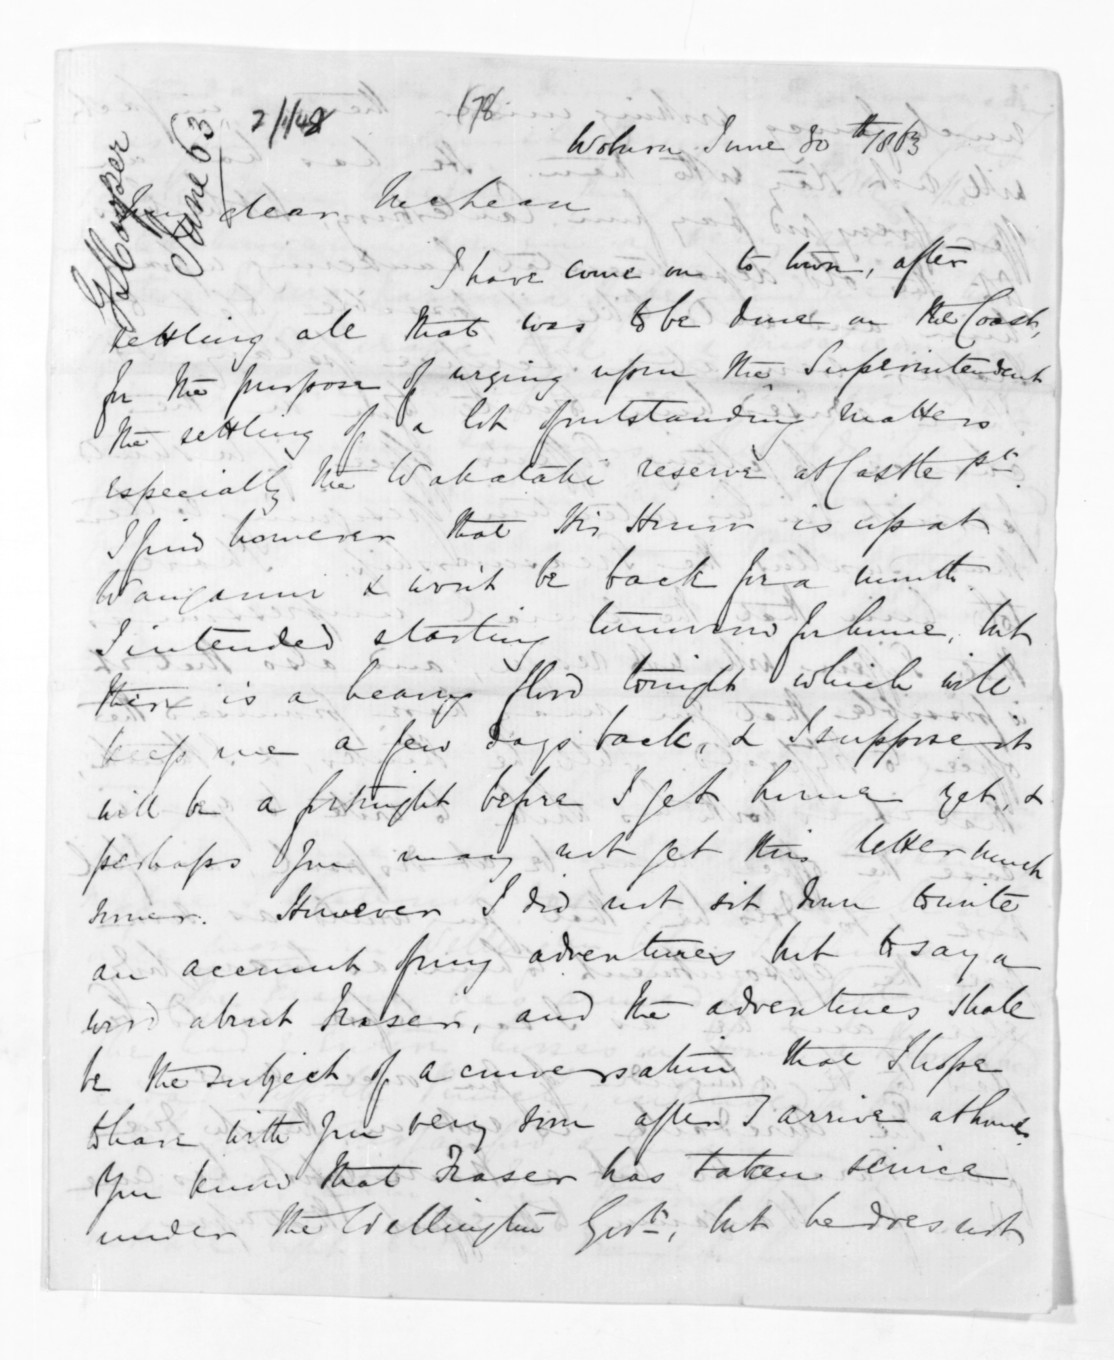 G S Cooper
June 63
678
Woburn June 30th/1863
My dear McLean
I have come on to town, after
settling all that was to be done on the Coast,
for the purpose of urging upon the Superintendent
the settling of a lot of outstanding matters
especially the Wakataki reserve at Castle Pt.
I find however that His Honor is up at
Wanganui & won't be back for a month.
I intended starting tomorrow for home, but
there is a heavy flood tonight which will
keep me a few days back, & I suppose it
will be a fortnight before I get home yet, &
perhaps you may not get this letter much
sooner. However I did not sit down to write
an account of my adventures but to say a
word about Fraser, and the adventures shall
be the subject of a conversation that I hope
to have with you very soon after I arrive at home.
You know that Fraser has taken service
under the Wellington Govt., but he does not